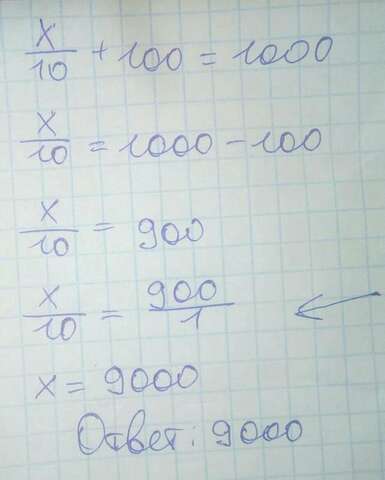 x/10 + 100 = 1000
x/10 = 1000 - 100
x/10 = 900
x/10 = 900/1
x = 9000
Ответ: 9000